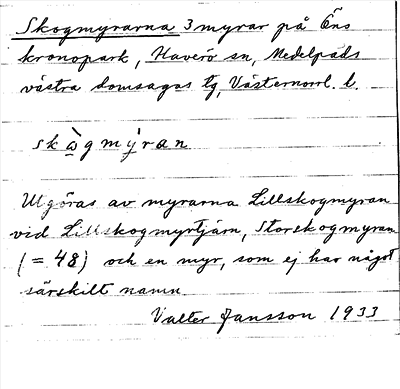 Skogmyrarna 3 myrar på Öns
kronopark, Haverö sn, Medelpads
västra domsagas tg, Västernorrl. l.
skὼgmýran
Utgöras av myrarna Lillskogmyran
vid Lillskogmyrtjärn, Storskogmyran
(= 48) och en myr, som ej har något
särskilt namn.
Valter Jansson 1933